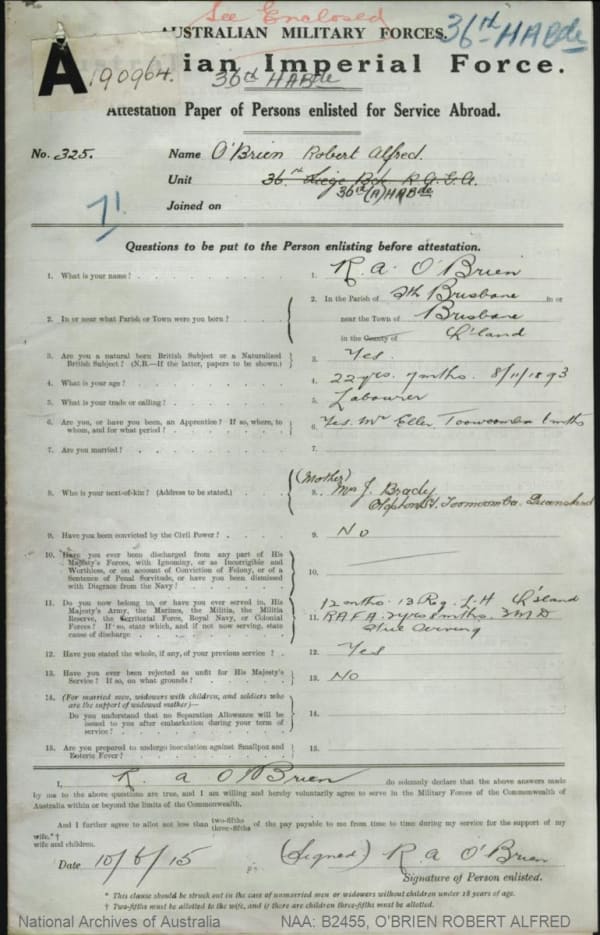 See Enclosed
AUSTRALIAN MILITARY FORCES.
36th HABde
A 190964.
ian Imperial Force.
36th HABde
Attestation Paper of Persons enlisted for Service Abroad.
No. 325. Name O'Brien Robert Alfred.
Unit 36th Siege Bde R.G.A.
36th (A) HABde
Joined on
Questions to be put to the Person enlisting before attestation.
1. What is your name? 1. R. A. O'Brien
2. In or near what Parish or Town were you born? 2. In the Parish of Sth Brisbane in or
near the Town of Brisbane
in the County of Q'land
3. Are you a natural born British Subject or a Naturalized
British Subject? (N.B.—If the latter, papers to be shown.) 3. Yes.
4. What is your age? 4. 22yrs. 7mths. 8/11/1893
5. What is your trade or calling? 5. Labourer
6. Are you, or have you been, an Apprentice? If so, where, to
whom, and for what period? 6. Yes. Mr Eller. Toowoomba 6mths
7. Are you married? 7.
8. Who is your next-of-kin? (Address to be stated.) 8. (Mother) Mrs J. Brady
St. Toowoomba. Queensland
9. Have you been convicted by the Civil Power? 9. No
10. Have you ever been discharged from any part of His
Majesty's Forces, with Ignominy, or as Incorrigible and
Worthless, or on account of Conviction of Felony, or of a
Sentence of Penal Servitude, or have you been dismissed
with Disgrace from the Navy? 10.
11. Do you now belong to, or have you ever served in, His
Majesty's Army, the Marines, the Militia, the Militia
Reserve, the Territorial Force, Royal Navy, or Colonial
Forces? If so, state which, and if not now serving, state
cause of discharge 11. 12 mths. 13 Reg. L.H Q'sland
RAFA. 2yrs 8mths. 2 M D
Still Serving
12. Have you stated the whole, if any, of your previous service? 12. Yes
13. Have you ever been rejected as unfit for His Majesty's
Service? If so, on what grounds? 13. No
14. (For married men, widowers with children, and soldiers who
are the support of widowed mother)—
Do you understand that no Separation Allowance will be
issued to you after embarkation during your term of
service? 14.
15. Are you prepared to undergo inoculation against Smallpox and
Enteric Fever? 15.
I, R. A O'Brien do solemnly declare that the above answers made
by me to the above questions are true, and I am willing and hereby voluntarily agree to serve in the Military Forces of the Commonwealth of
Australia within or beyond the limits of the Commonwealth.
And I further agree to allot not less than two-fifths three-fifths of the pay payable to me from time to time during my service for the support of my
wife.*†
wife and children.
Date 10/6/15 (Signed) R. A O'Brien
Signature of Person enlisted.
* This clause should be struck out in the case of unmarried men or widowers without children under 18 years of age.
† Two-fifths must be allotted to the wife, and if there are children three-fifths must be allotted.
National Archives of Australia NAA: B2455, O'BRIEN ROBERT ALFRED